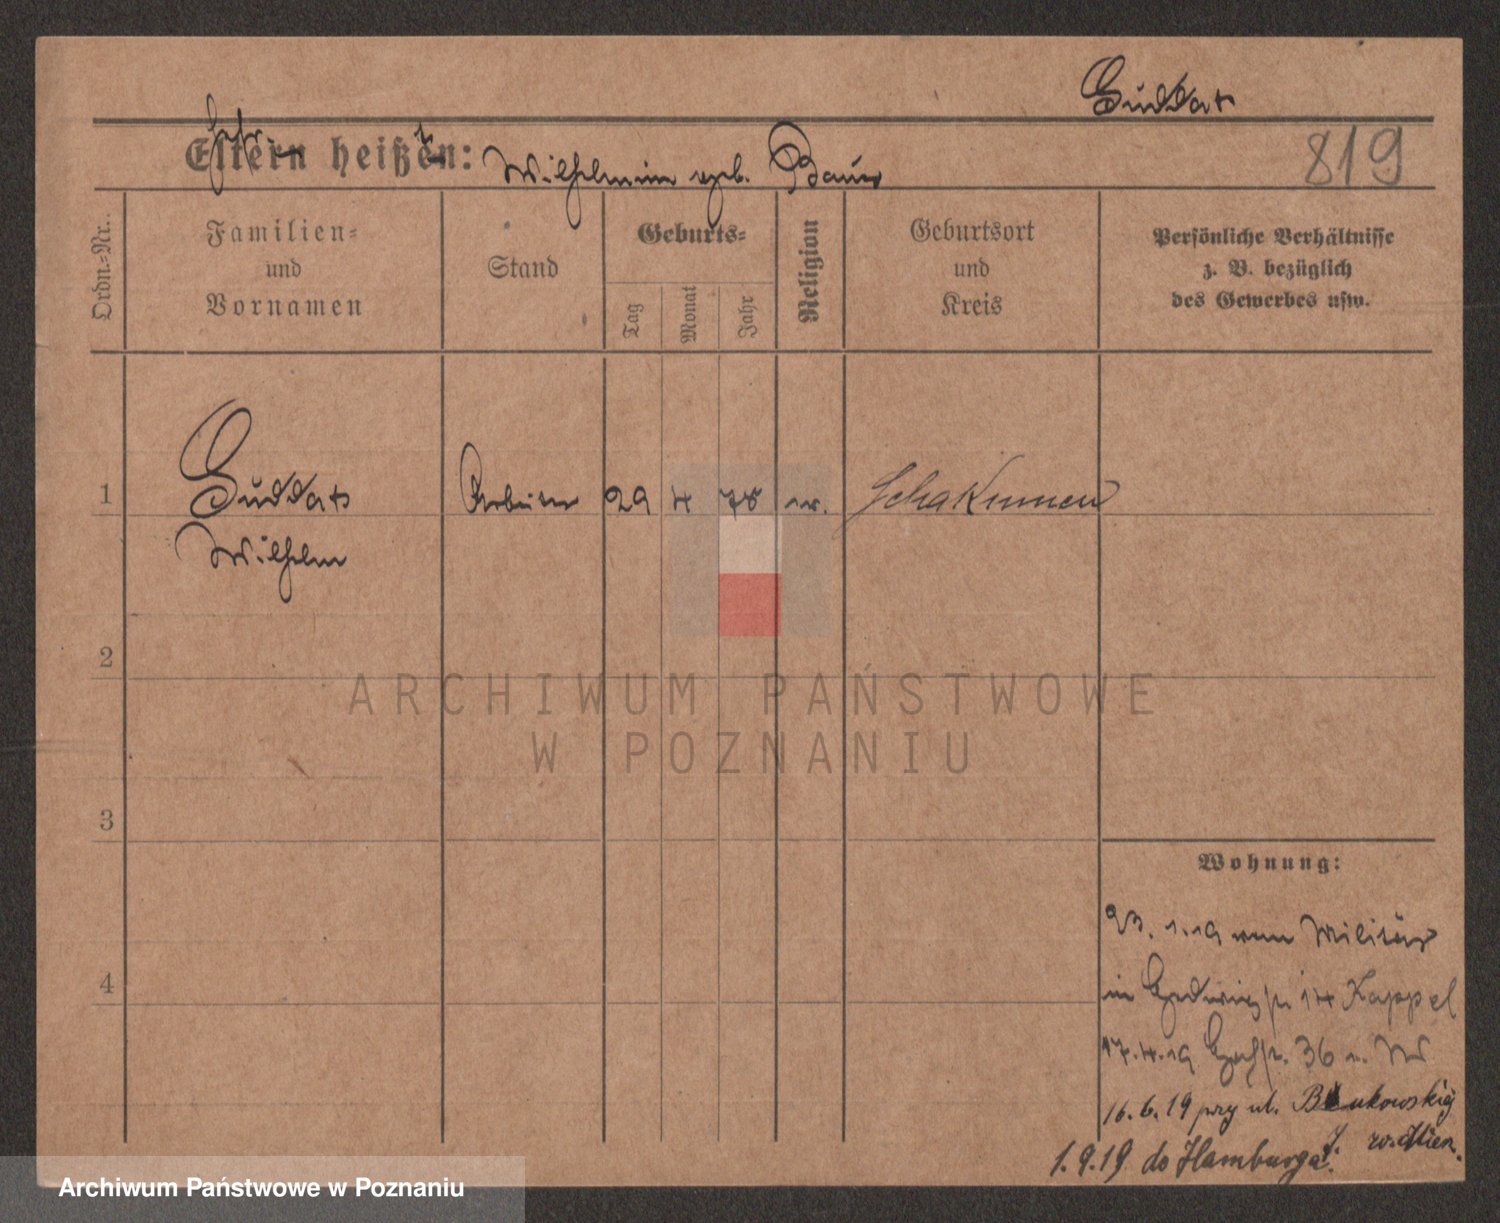 Guddat
819
Eltern heißen:
Wilhelmine geb. Bauer
Ordn.-Nr.
Familien-
und
Vornamen
Stand
Geburts-
Tag
Monat
Jahr
Religion
Geburtsort
und
Kreis
Persönliche Verhältnisse
z. B. bezüglich
des Gewerbes usw.
1
Guddat
Arbeiter
29
4
78
ev.
Schakumen
Wilhelm
2
3
4
Wohnung:
23. 1. 19 vom Militär
in 14 Kappel
17. 4. 19 36
16. 6. 19 przy ul. Bukowskiej
1. 9. 19 do Hamburga.
ARCHIWUM PAŃSTWOWE
W POZNANIU
Archiwum Państwowe w Poznaniu